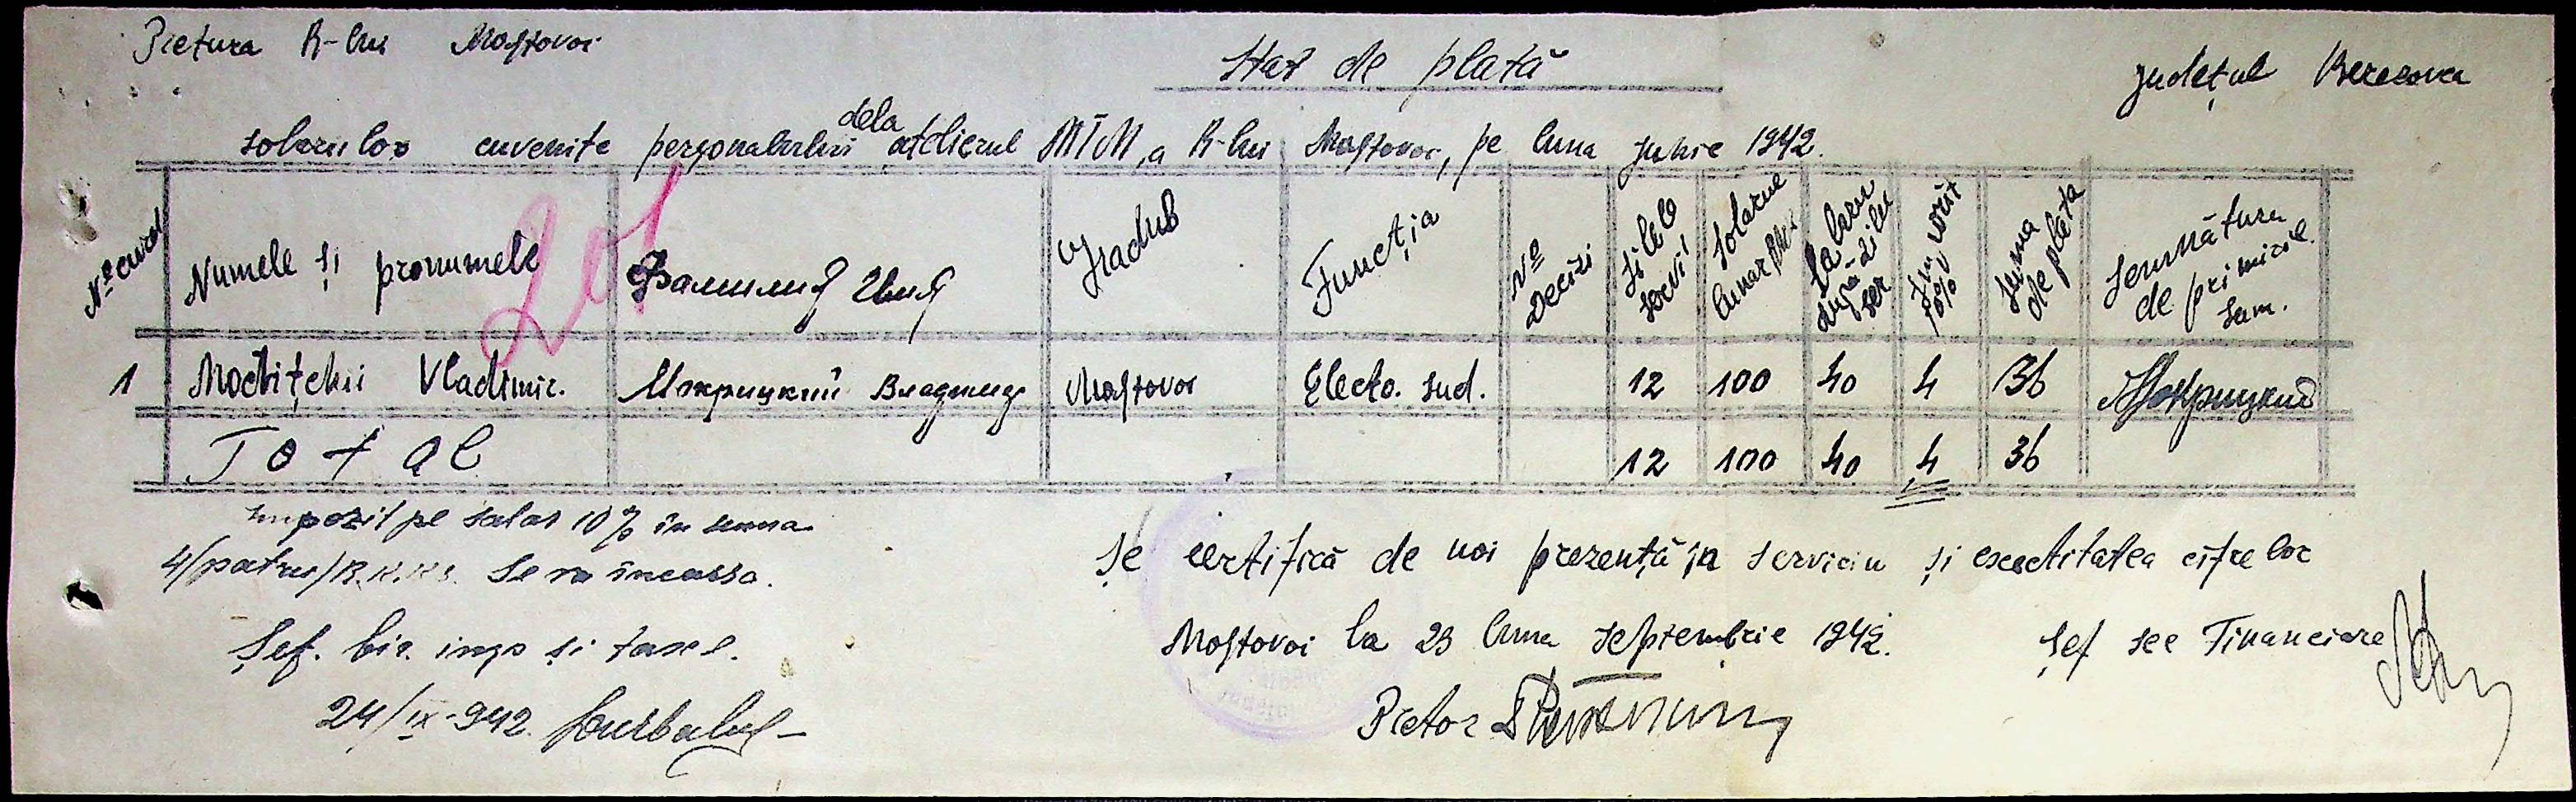 Pretura R-lui Mostovoi
Stat de plată
Județul Berezovca
solariilor cuvenite personalului dela atelierul MTM, a R-lui Mostovoi, pe luna Junie 1942.
Nº curent Numele și pronumele Фамилия Имя Gradul Funcția Nº Decizi Zilele servi Solariul lunar Salariu după zile ser 10% Suma de plata Semnătura de primire sum.
1 Mocrițchii Vladimir. Мокрицкий Владимир Mostovoi Electo. sud. 12 100 40 4 36 Мокрицкий
Total 12 100 40 4 36
Impozit pe salar 10% în suma
4/patru/R.K.K.S. Se va încassa.
Șef. bir. imp și taxe.
24/IX-942.
Se certifică de noi prezență în serviciu și exactitatea cifrelor
Mostovoi la 23 luna Septembrie 1942.
Șef sec Financiare
Pretor